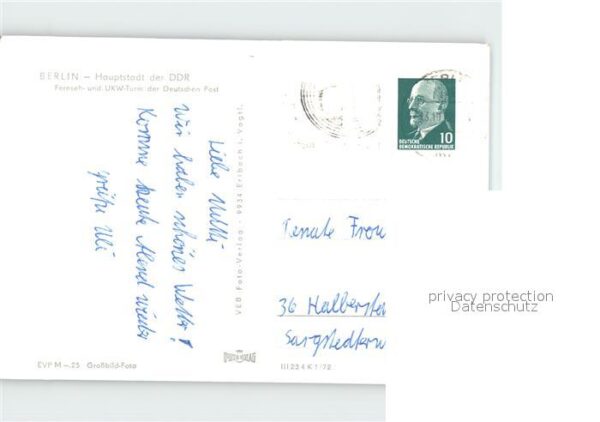 BERLIN – Hauptstadt der DDR
Fernseh- und UKW-Turm der Deutschen Post
Liebe Mutti
Wir haben schönes Wetter!
Komme heute Abend wieder
grüße Uli
VEB Foto-Verlag · 9934 Erlbach i. Vogtl.
10
DEUTSCHE
DEMOKRATISCHE REPUBLIK
Renate
36 Halberstad
Sargstedterw
privacy protection
Datenschutz
EVP M –.25 Großbild-Foto
FOTO-VERLAG
III 23 4 K 1/72